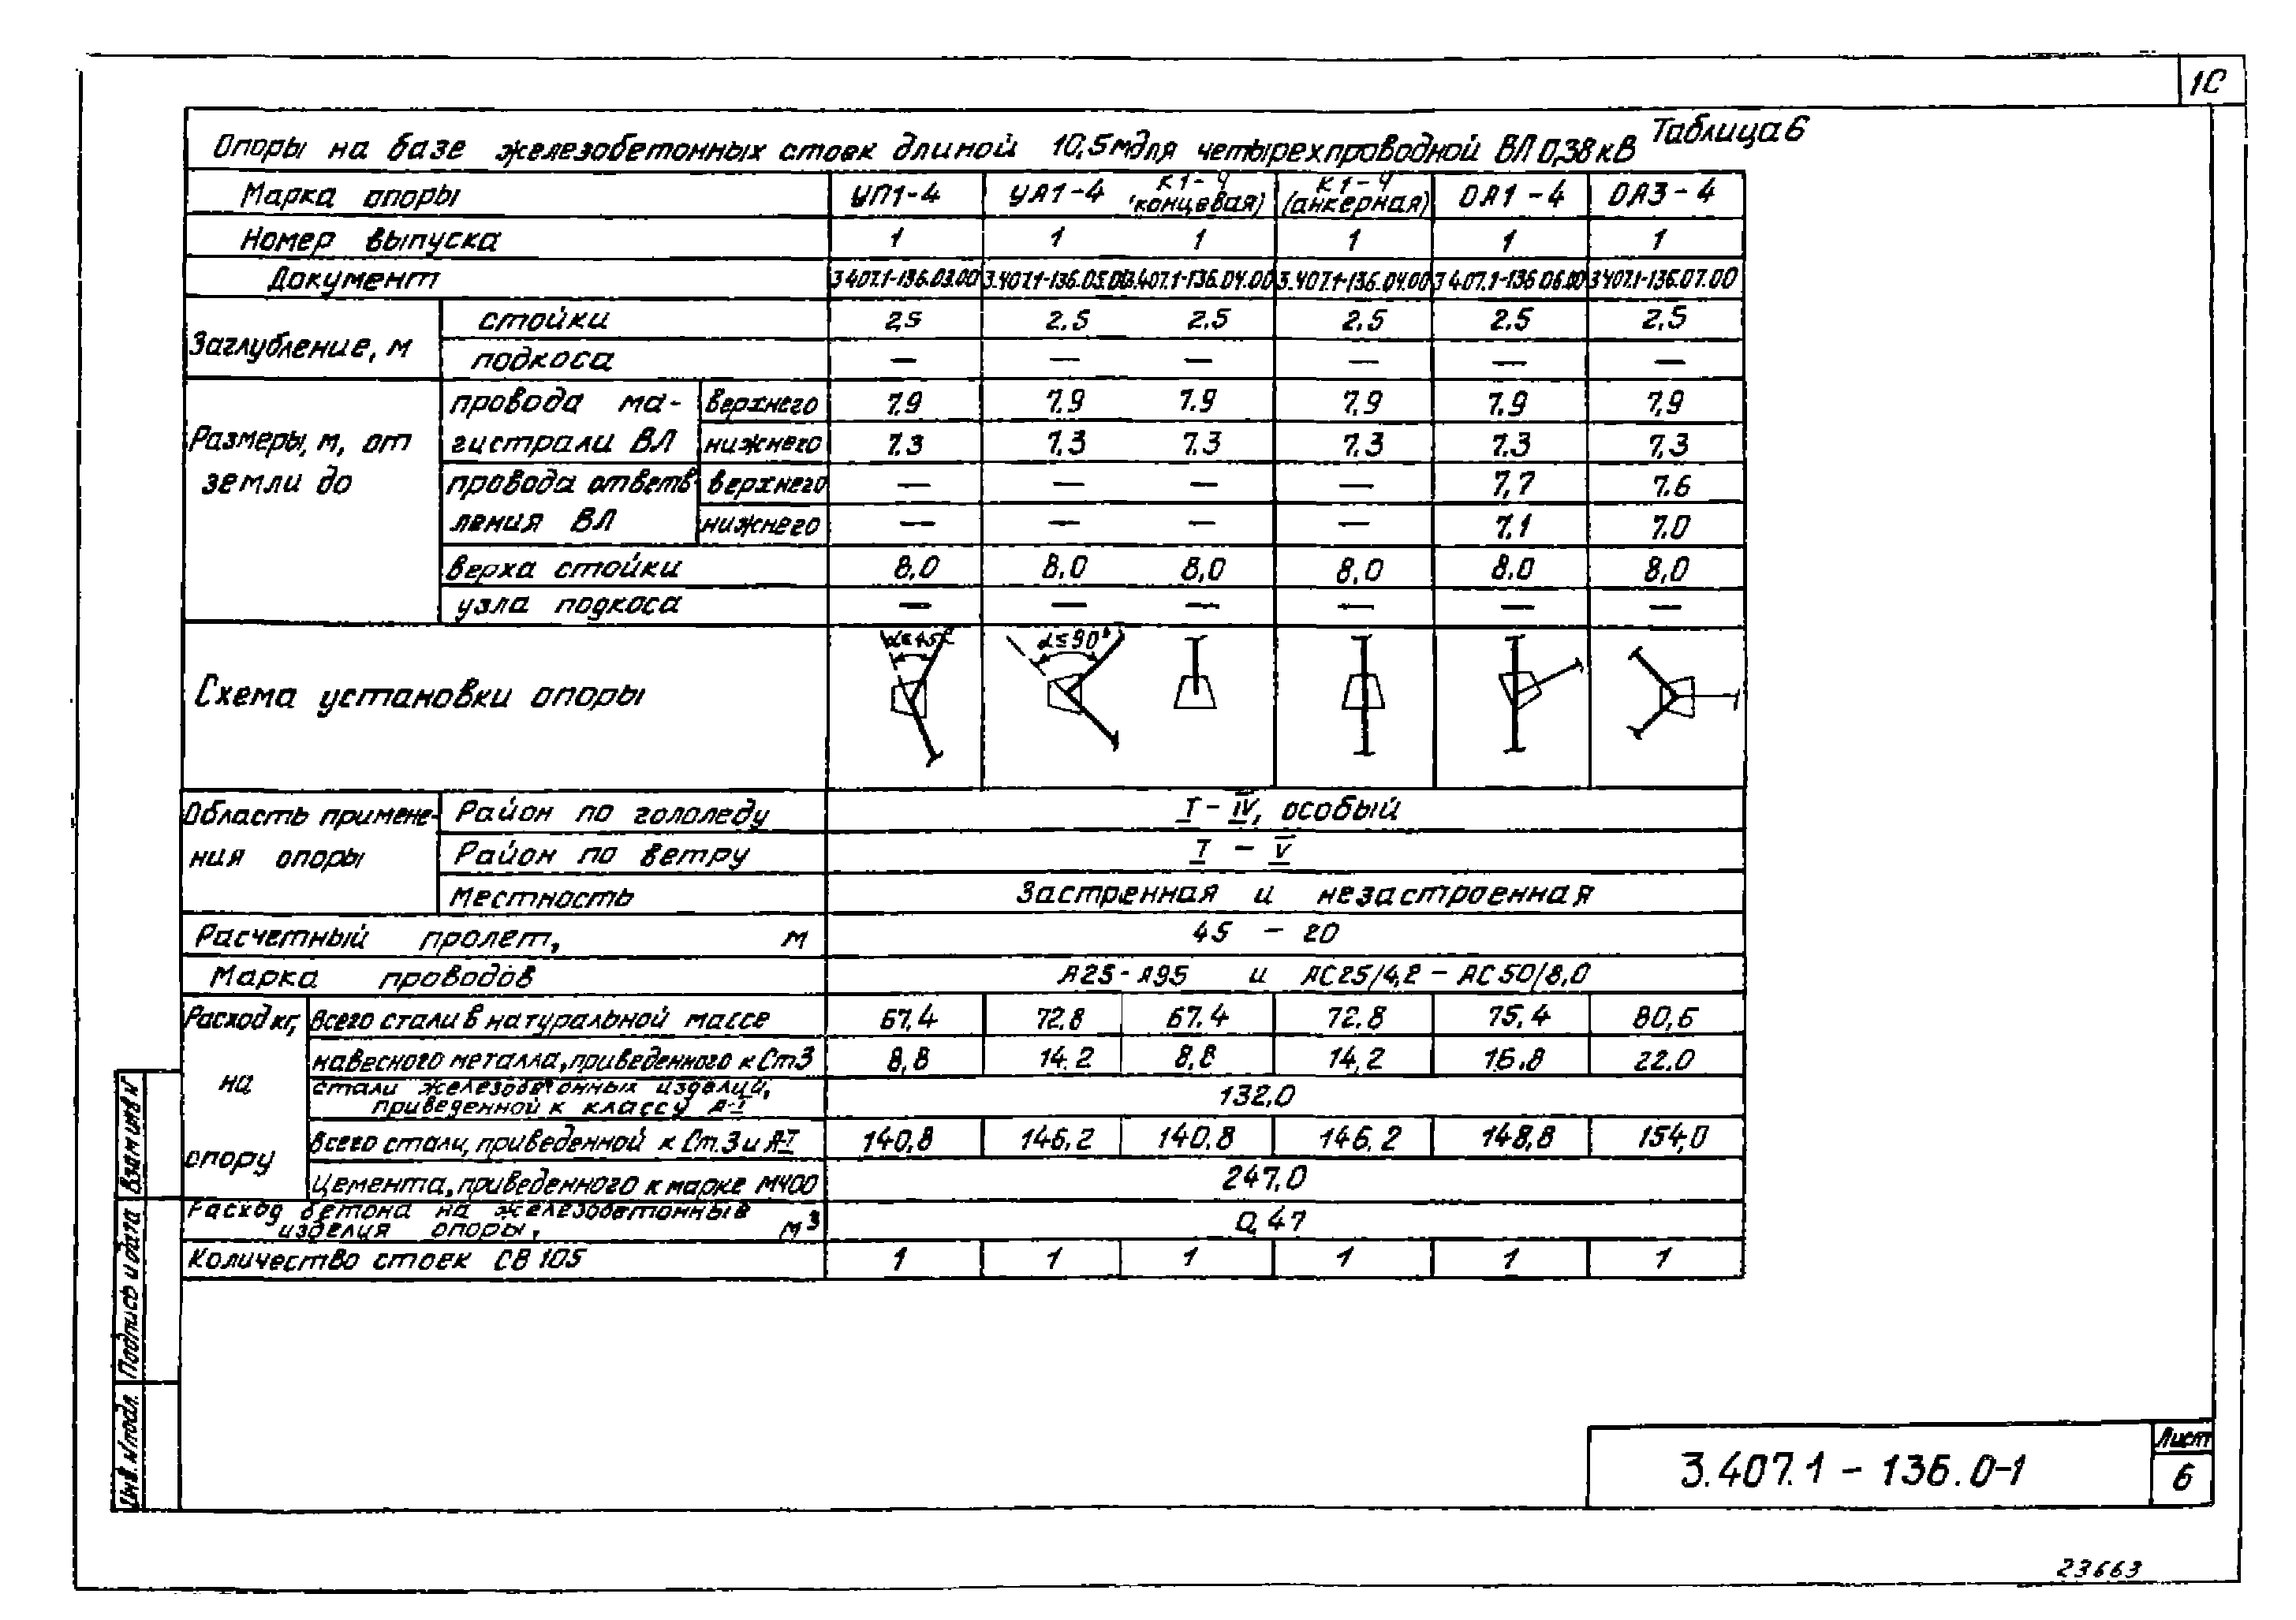 1С
Таблица 6
Опоры на базе железобетонных стоек длиной 10,5м для четырехпроводной ВЛ 0,38 кВ
Марка опоры УП1-4 УА1-4 К1-4 (концевая) К1-4 (анкерная) ОА1-4 ОА3-4
Номер выпуска 1 1 1 1 1 1
Документ 3.407.1-136.03.00 3.407.1-136.05.00 3.407.1-136.04.00 3.407.1-136.04.00 3.407.1-136.06.00 3.407.1-136.07.00
Заглубление, м стойки 2,5 2.5 2.5 2.5 2.5 2,5
подкоса — — — — — —
Размеры, м, от земли до провода ма-
гистрали ВЛ верхнего 7.9 7.9 7.9 7.9 7.9 7,9
нижнего 7.3 7.3 7.3 7.3 7.3 7,3
провода ответв
ления ВЛ верхнего — — — — 7,7 7.6
нижнего — — — — 7.1 7.0
верха стойки 8,0 8,0 8,0 8,0 8.0 8,0
узла подкоса — — — — — —
Схема установки опоры α≤45° α≤90°
Область примене-
ния опоры Район по гололеду I - IV, особый
Район по ветру I - V
Местность Застренная и незастроенная
Расчетный пролет, м 45 - 20
Марка проводов А25-А95 и АС25/4,2 - АС50/8,0
Расход кг, на опору всего стали в натуральной массе 67,4 72.8 67.4 72.8 75,4 80,6
навесного металла, приведенного к Ст3 8,8 14.2 8,8 14,2 16.8 22.0
стали железобетонных изделий,
приведенной к классу А-I 132,0
всего стали, приведенной к Ст.3 и А-I 140,8 146,2 140,8 146,2 148,8 154,0
цемента, приведенного к марке М400 247,0
Расход бетона на железобетонные
изделия опоры, м³ 0,47
Количество стоек СВ 105 1 1 1 1 1 1
Инв. № подл. Подпись и дата Взам инв №
3.407.1 - 136.0-1
Лист
6
23663